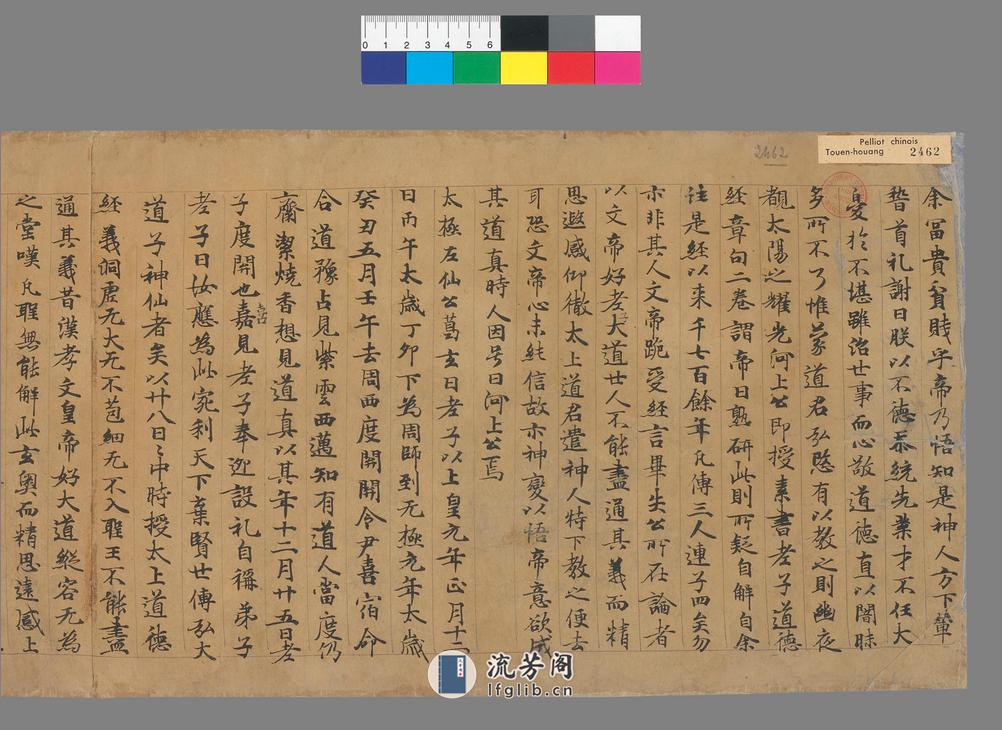 Pelliot chinois
Touen-houang 2462
2462
0 1 2 3 4 5 6
余冨貴貧賤乎帝乃悟知是神人方下輦
稽首礼謝曰朕以不德忝統先業才不任大
憂於不堪雖治世事而心敬道德直以闇昧
多所不了惟蒙道君弘愍有以教之則幽夜
覩太陽之耀光河上公即授素書老子道德
經章句二卷謂帝曰熟研此則所疑自解自余
注是經以來千七百餘年凡傳三人連子四矣勿
示非其人文帝跪受經言畢失公所在論者
以文帝好老大道世人不能盡通其義而精
思遐感仰徹太上道君遣神人特下教之便去
耳恐文帝心未純信故示神變以悟帝意欲成
其道真時人因号曰河上公焉
太極左仙公葛玄曰老子以上皇元年正月十二
日丙午太歲丁卯下為周師到无極元年太歲
癸丑五月壬午去周西度關關令尹喜宿命
合道豫占見紫雲西邁知有道人當度仍
齋潔燒香想見道真以其年十二月廿五日老
子度關也喜見老子奉迎設礼自稱弟子
老子曰汝應為此宛利天下棄賢世傳弘大
道子神仙者矣以廿八日日中時授太上道德
經義洞虛无大无不苞細无不入聖王不能盡
通其義昔漢孝文皇帝好大道縱容无為
之堂嘆凡聖無能解此玄奧而精思遠感上
流芳阁
lfglib.cn